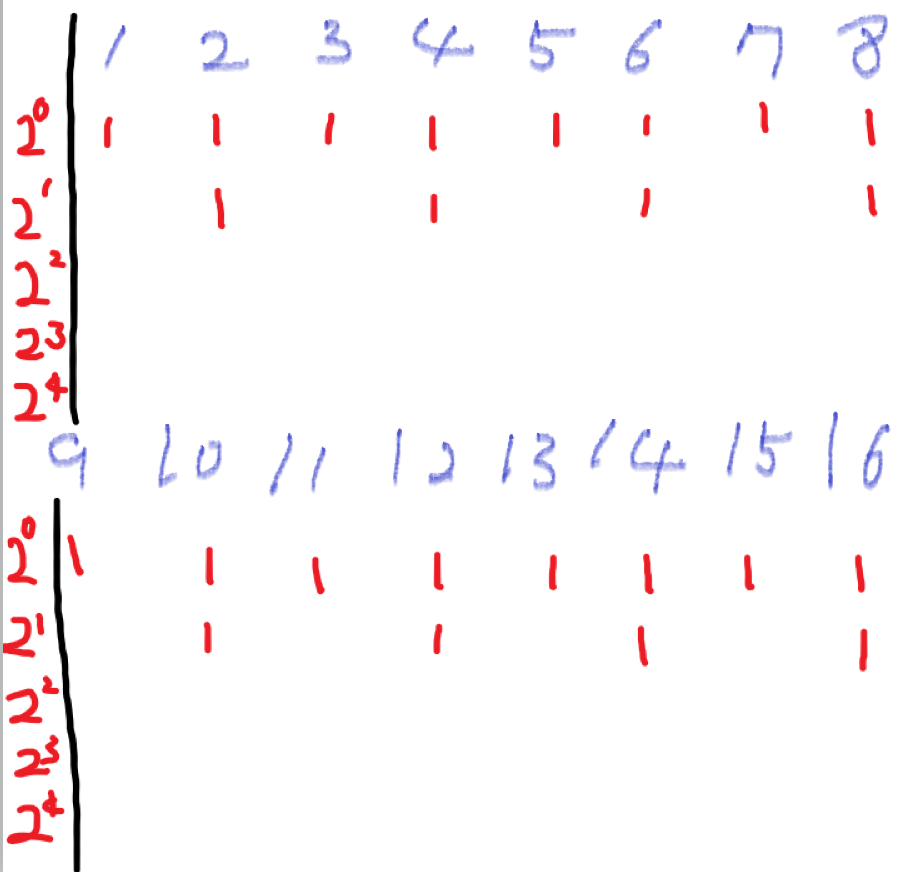 1 2 3 4 5 6 7 8
2⁰ 1 1 1 1 1 1 1 1
2¹ 1 1 1 1
2²
2³
2⁴
9 10 11 12 13 14 15 16
2⁰ 1 1 1 1 1 1 1 1
2¹ 1 1 1 1
2²
2³
2⁴